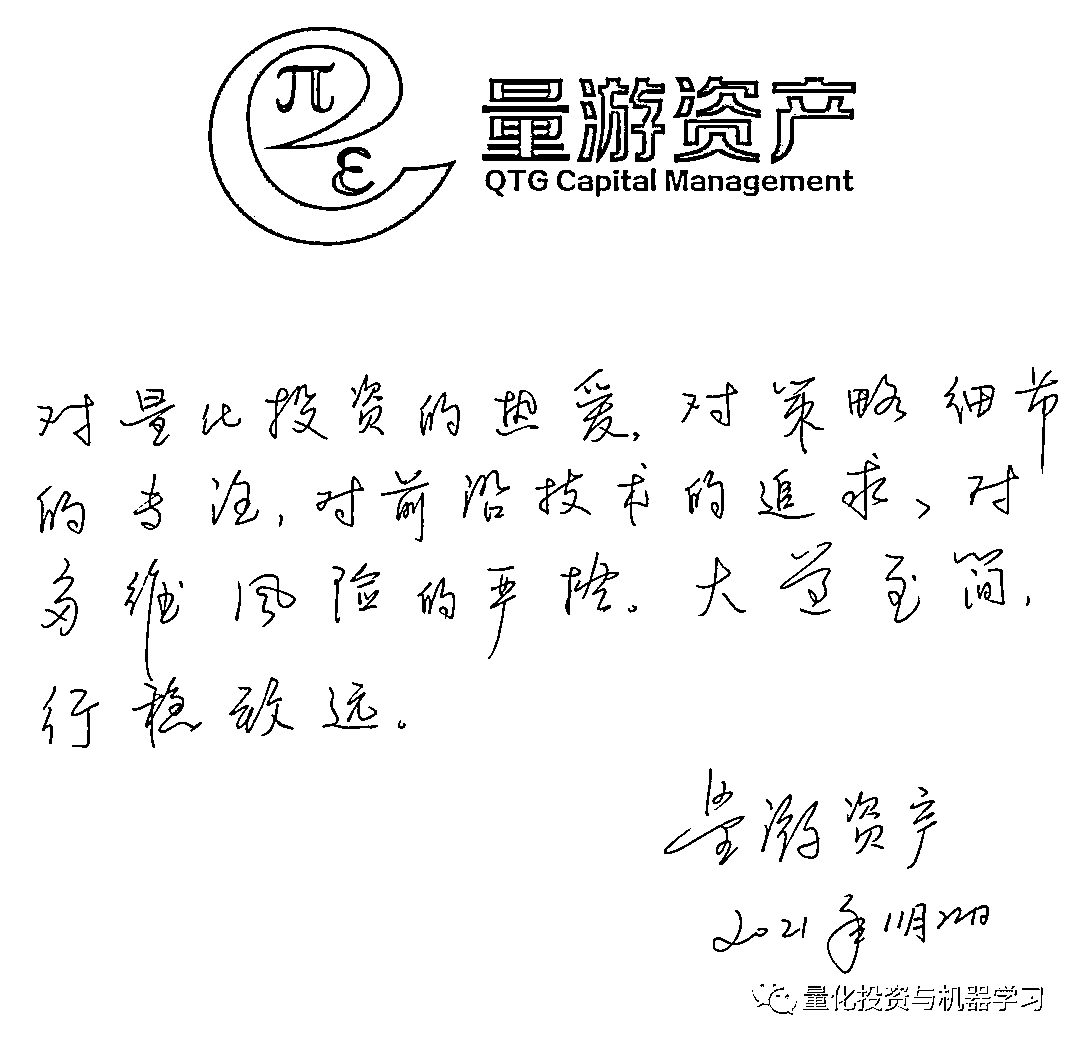 π
ε
量游资产
QTG Capital Management
对量化投资的热爱,对策略细节
的专注,对前沿技术的追求、对
多维风险的严控。大道至简,
行稳致远。
量游资产
2021年11月22日
量化投资与机器学习